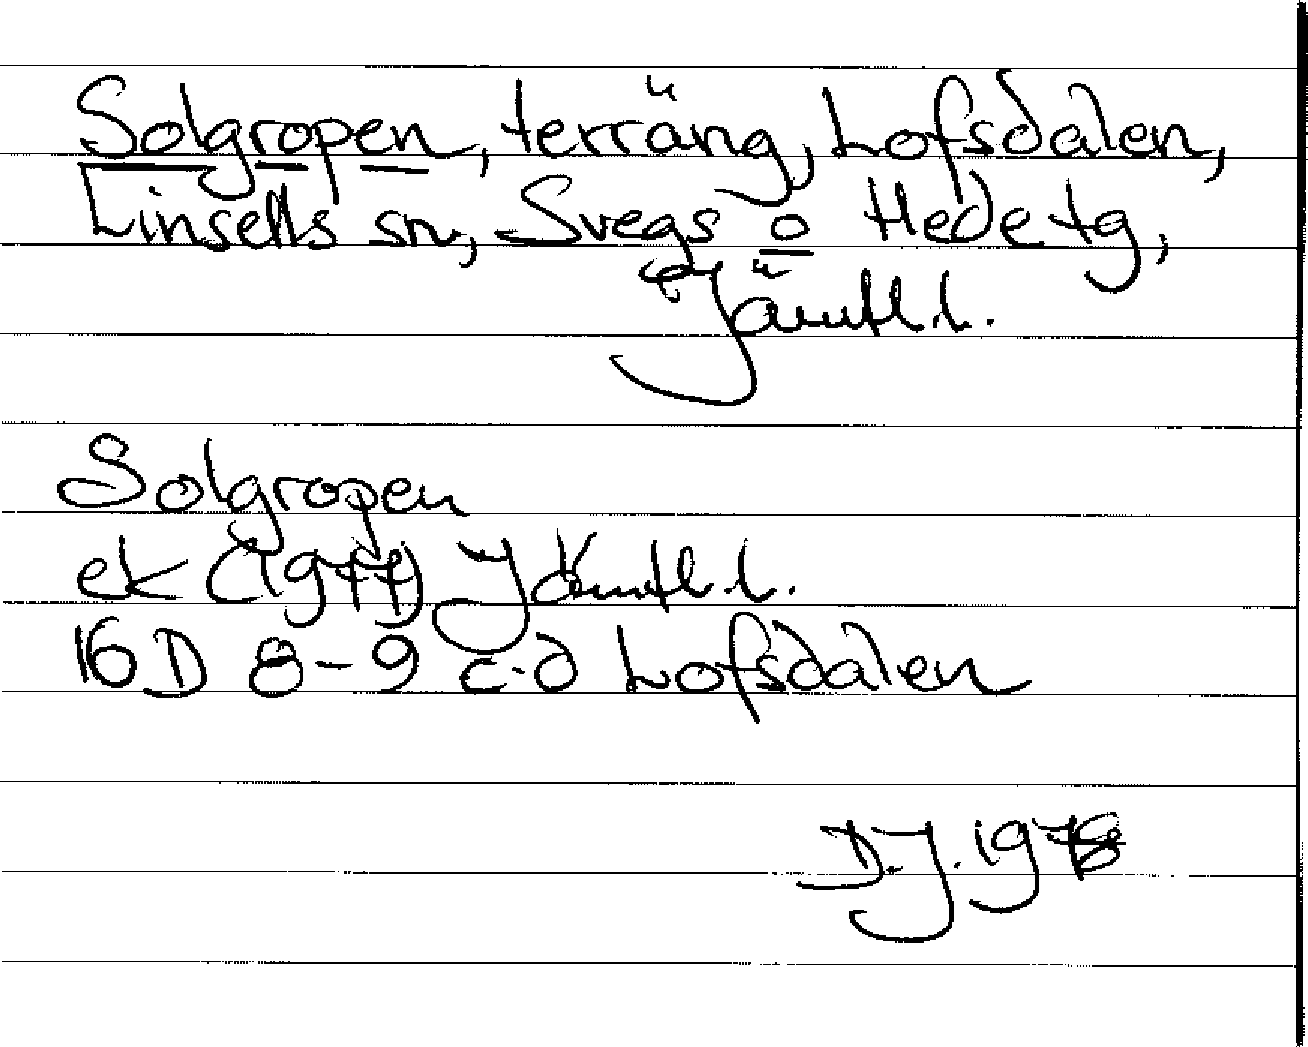 Solgropen, terräng, Lofsdalen,
Linsells sn, Svegs o Hede tg,
Jämtl.l.
Solgropen
ek (1977) Jämtl.l.
16 D 8-9 c-d Lofsdalen
D.J. 1978